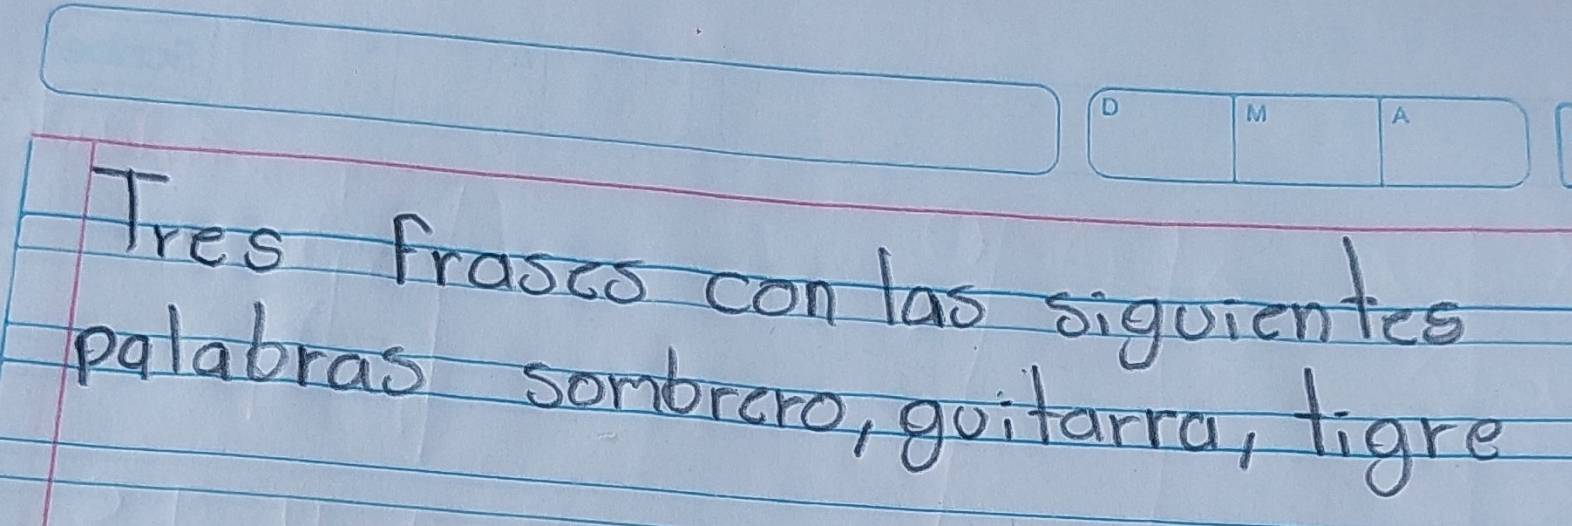 D M A
Tres frases con las siguientes
palabras sombrero, guitarra, tigre